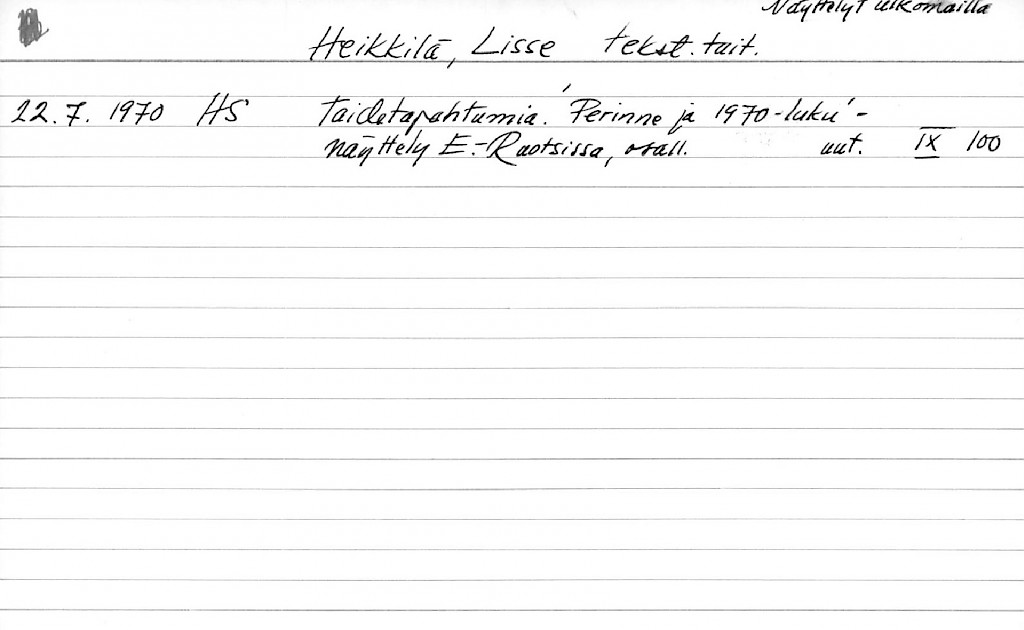 Näyttelyt ulkomailla
Heikkilä, Lisse tekst. tait.
22.7. 1970 HS Taidetapahtumia. 'Perinne ja 1970-luku'-
näyttely E.-Ruotsissa, osall. uut. IX 100